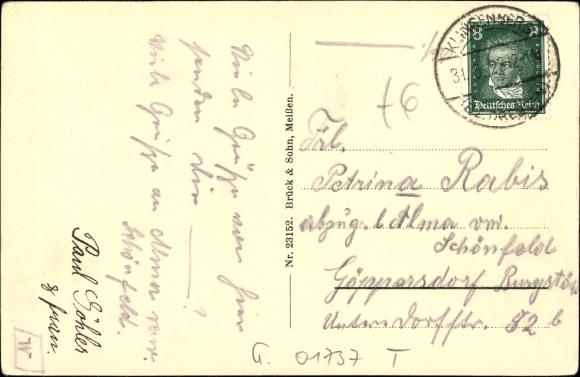 Viele Grüße von hier
senden Dir
?
Viele Grüße an Alma verw.
Schönfeld.
Paul Göhler
& Frau.
W
Nr. 23152. Brück & Sohn, Meißen.
8
Deutsches Reich
+6
Frl.
Petrina Rabis
abzug. b Alma vw.
Schönfeld
Göppersdorf Burgstä
Unterdorfstr. 52 b
G. 01737 T